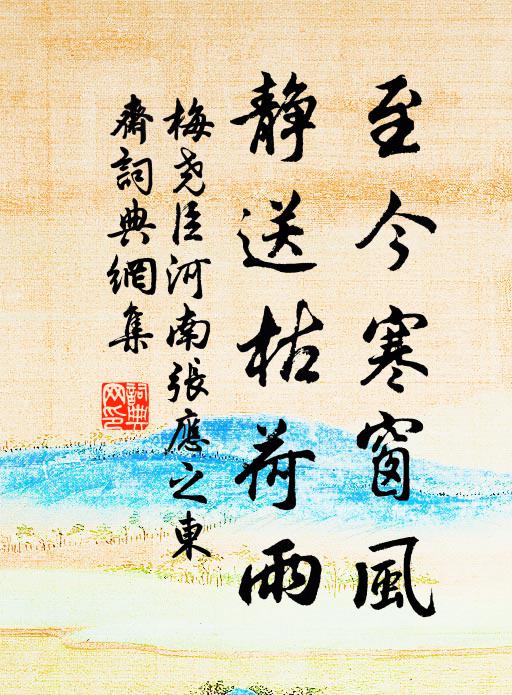 至今寒窗風
静送枯荷雨
梅尧臣河南張應之東
齋詞典網集
詞典
网印